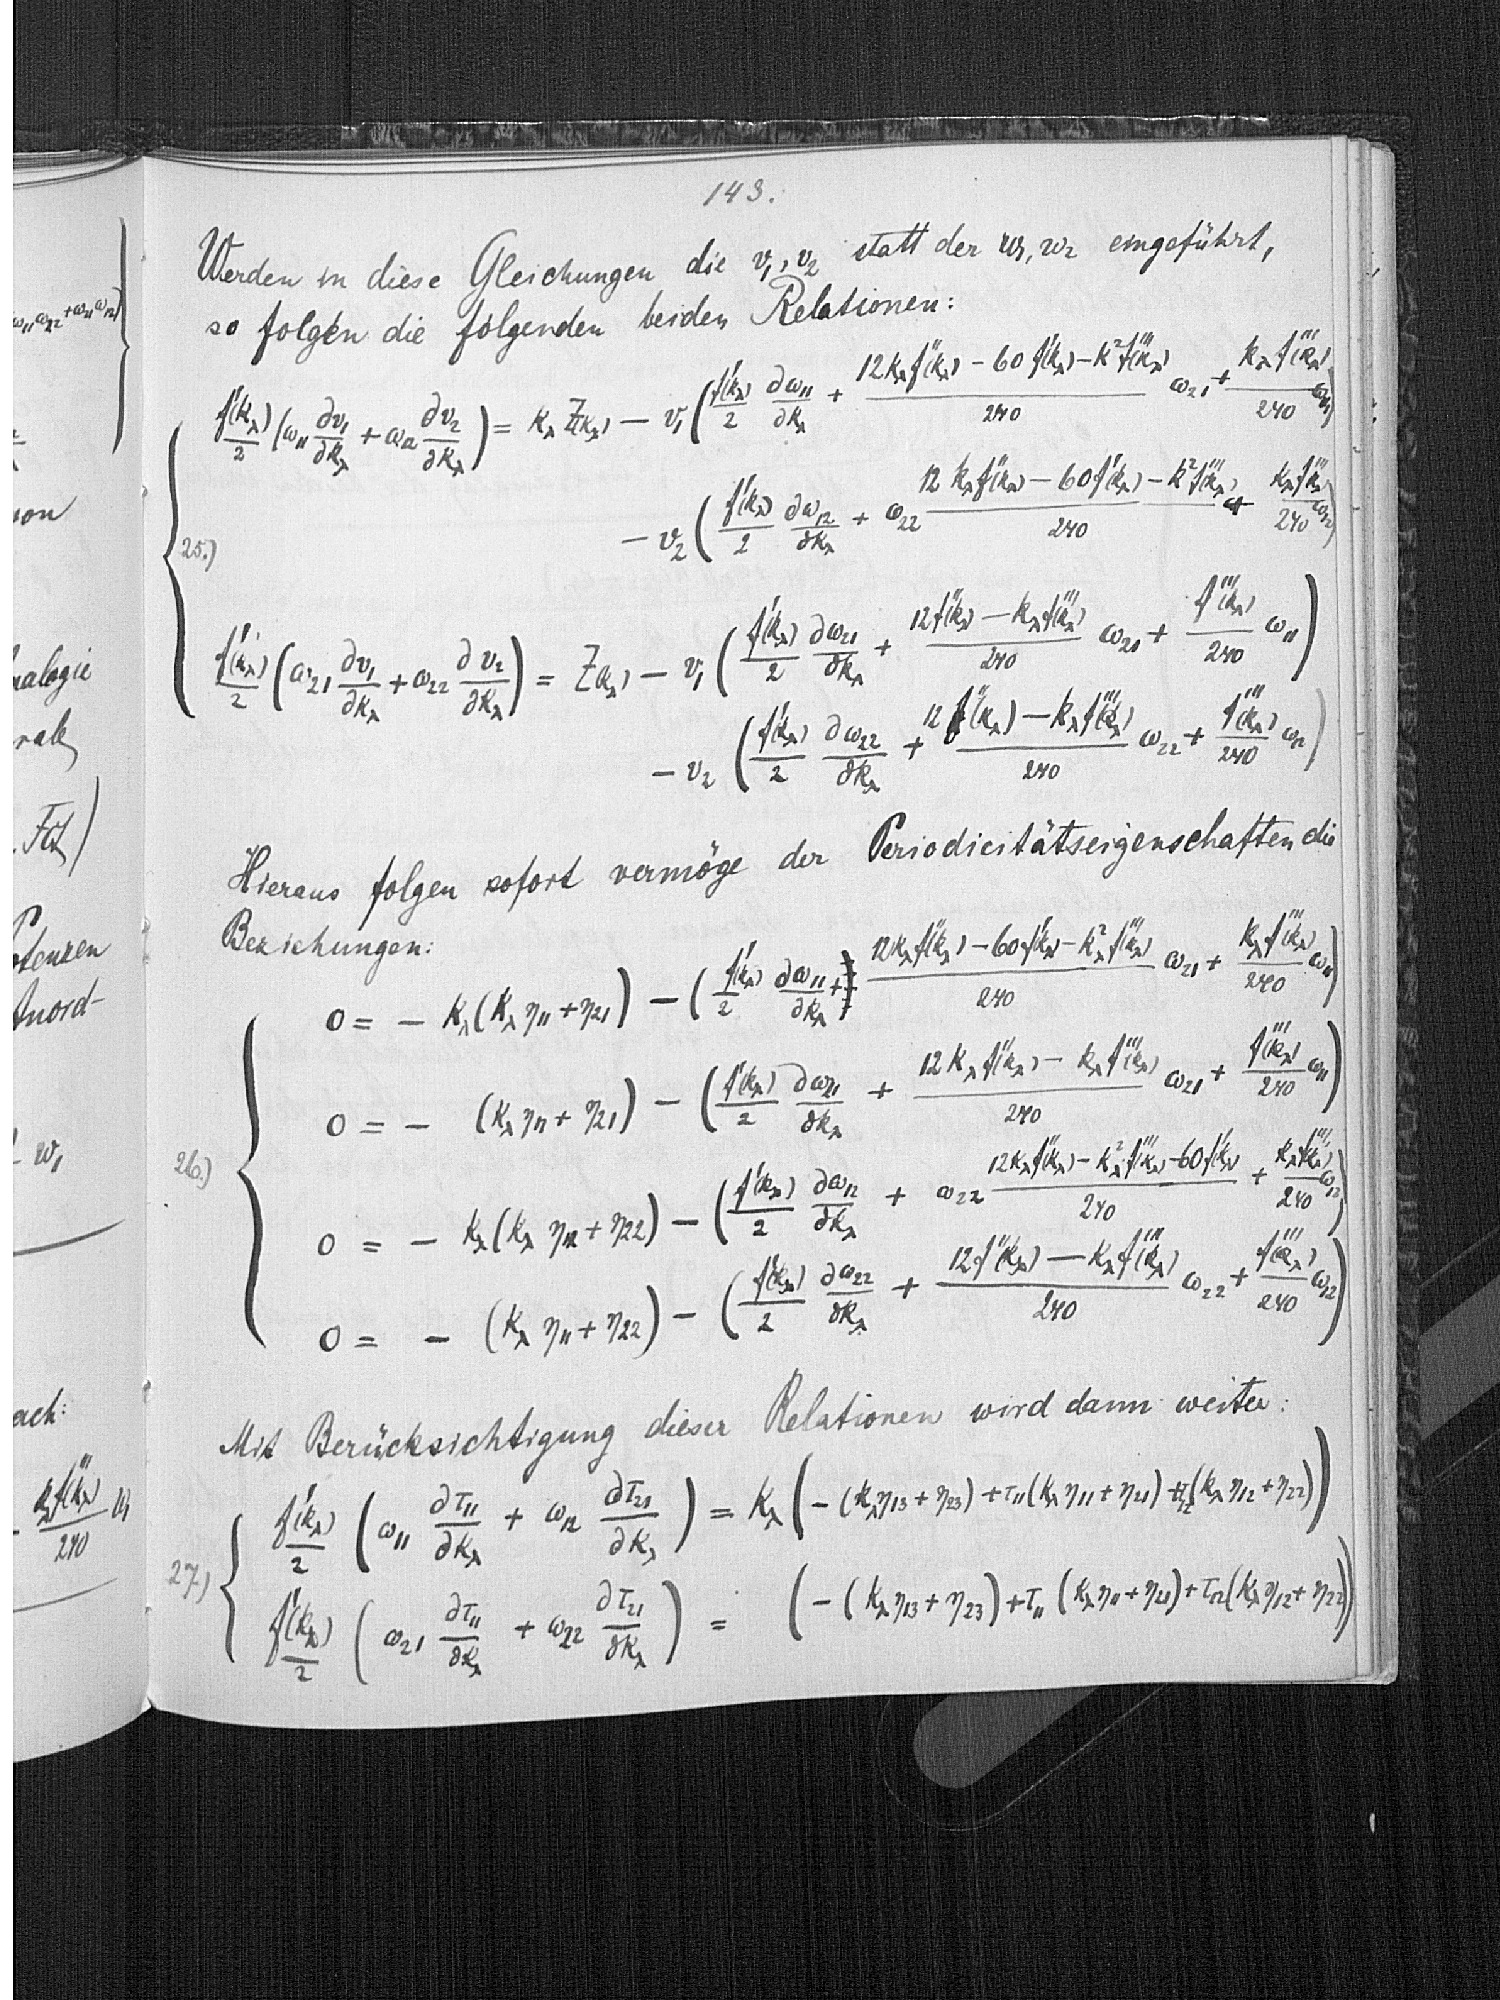 143.
Werden in diese Gleichungen die v₁, v₂ statt der w₁, w₂ eingeführt,
so folgen die folgenden beiden Relationen:
25.)
f'(k_λ)/2 (ω₁₁ ∂v₁/∂k_λ + ω₁₂ ∂v₂/∂k_λ) = k_λ Z(k_λ) − v₁ (f'(k_λ)/2 ∂ω₁₁/∂k_λ + (12 k_λ f''(k_λ) − 60 f'(k_λ) − k² f'''(k_λ))/240 ω₂₁ + k_λ f'''(k_λ)/240 ω₁₁)
− v₂ (f'(k_λ)/2 ∂ω₁₂/∂k_λ + ω₂₂ (12 k_λ f''(k_λ) − 60 f'(k_λ) − k² f'''(k_λ))/240 + k_λ f'''(k_λ)/240 ω₁₂)
f'(k_λ)/2 (ω₂₁ ∂v₁/∂k_λ + ω₂₂ ∂v₂/∂k_λ) = Z(k_λ) − v₁ (f'(k_λ)/2 ∂ω₂₁/∂k_λ + (12 f''(k_λ) − k_λ f'''(k_λ))/240 ω₂₁ + f'''(k_λ)/240 ω₁₁)
− v₂ (f'(k_λ)/2 ∂ω₂₂/∂k_λ + (12 f''(k_λ) − k_λ f'''(k_λ))/240 ω₂₂ + f'''(k_λ)/240 ω₁₂)
Hieraus folgen sofort vermöge der Periodicitätseigenschaften die
Beziehungen:
26.)
0 = − k_λ (k_λ η₁₁ + η₂₁) − (f'(k_λ)/2 ∂ω₁₁/∂k_λ + (12 k_λ f''(k_λ) − 60 f'(k_λ) − k_λ² f'''(k_λ))/240 ω₂₁ + k_λ f'''(k_λ)/240 ω₁₁)
0 = − (k_λ η₁₁ + η₂₁) − (f'(k_λ)/2 ∂ω₂₁/∂k_λ + (12 k_λ f''(k_λ) − k_λ f'''(k_λ))/240 ω₂₁ + f'''(k_λ)/240 ω₁₁)
0 = − k_λ (k_λ η₁₂ + η₂₂) − (f'(k_λ)/2 ∂ω₁₂/∂k_λ + ω₂₂ (12 k_λ f''(k_λ) − k_λ² f'''(k_λ) − 60 f'(k_λ))/240 + k_λ f'''(k_λ)/240 ω₁₂)
0 = − (k_λ η₁₁ + η₂₂) − (f'(k_λ)/2 ∂ω₂₂/∂k_λ + (12 f''(k_λ) − k_λ f'''(k_λ))/240 ω₂₂ + f'''(k_λ)/240 ω₁₂)
Mit Berücksichtigung dieser Relationen wird dann weiter:
27.)
f'(k_λ)/2 (ω₁₁ ∂τ₁₁/∂k_λ + ω₁₂ ∂τ₂₁/∂k_λ) = k_λ (− (k_λ η₁₃ + η₂₃) + τ₁₁ (k_λ η₁₁ + η₂₁) + τ₁₂ (k_λ η₁₂ + η₂₂))
f'(k_λ)/2 (ω₂₁ ∂τ₁₁/∂k_λ + ω₂₂ ∂τ₂₁/∂k_λ) = (− (k_λ η₁₃ + η₂₃) + τ₁₁ (k_λ η₁₁ + η₂₁) + τ₁₂ (k_λ η₁₂ + η₂₂))